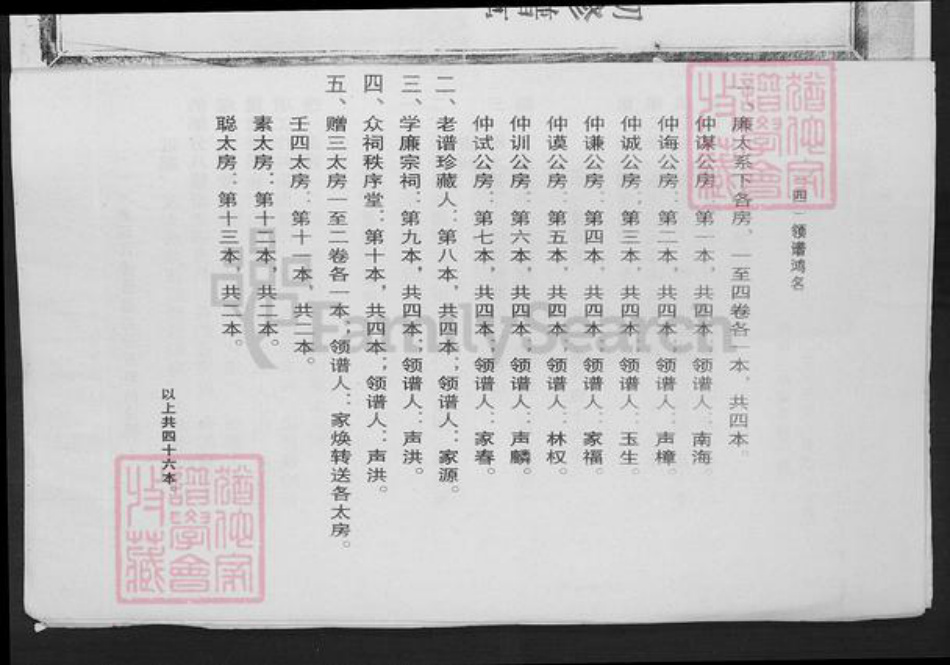 四、领谱鸿名
一、廉太系下各房、一至四卷各一本，共四本。
仲谋公房：第一本，共四本，领谱人：南海。
仲诲公房：第二本，共四本，领谱人：声樟。
仲诚公房：第三本，共四本，领谱人：玉生。
仲谦公房：第四本，共四本，领谱人：家福。
仲谟公房：第五本，共四本，领谱人：林权。
仲训公房：第六本，共四本，领谱人：声麟。
仲试公房：第七本，共四本，领谱人：家春。
二、老谱珍藏人：第八本，共四本；领谱人：家源。
三、学廉宗祠：第九本，共四本；领谱人：声洪。
四、众祠秩序堂：第十本，共四本；领谱人：声洪。
五、赠三太房一至二卷各一本；领谱人：家焕转送各太房。
壬四太房：第十一本，共二本。
素太房：第十二本，共二本。
聪太房：第十三本，共二本。
以上共四十六本。
FamilySearch
譜學會
收藏
譜學會
收藏